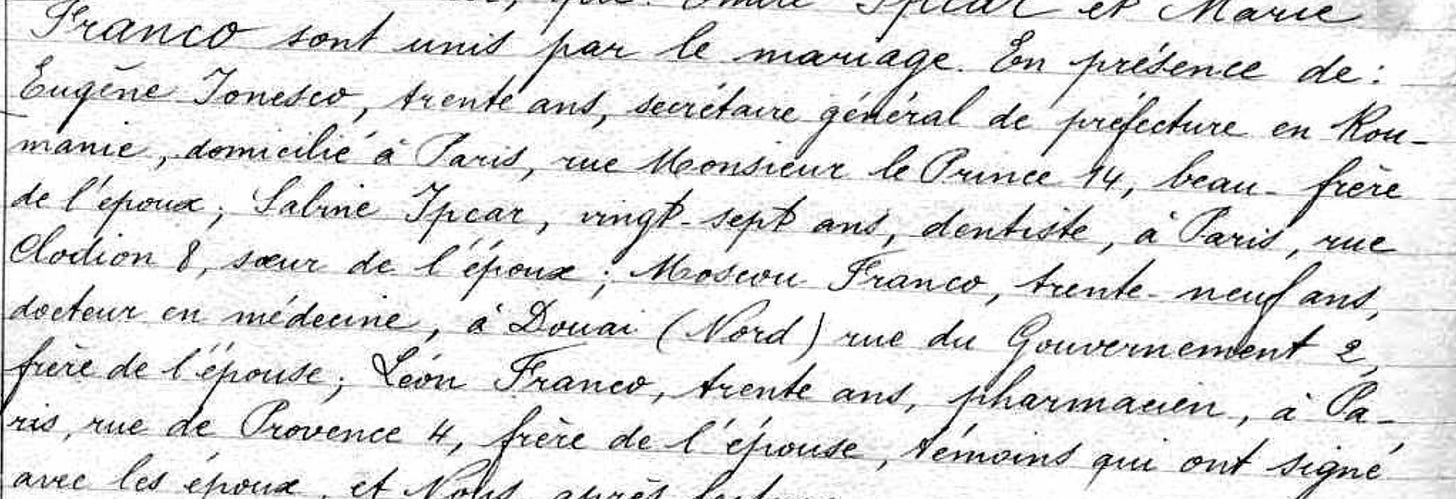 que: Ipcar et Marie
Franco sont unis par le mariage. En présence de:
Eugène Ionesco, trente ans, secrétaire général de préfecture en Rou-
manie, domicilié à Paris, rue Monsieur le Prince 14, beau-frère
de l'époux; Sabine Ipcar, vingt-sept ans, dentiste, à Paris, rue
Clodion 8, sœur de l'époux; Moscou Franco, trente-neuf ans,
docteur en médecine, à Douai (Nord) rue du Gouvernement 2,
frère de l'épouse; Léon Franco, trente ans, pharmacien, à Pa-
ris, rue de Provence 4, frère de l'épouse, témoins qui ont signé
avec les époux et Nous après lecture